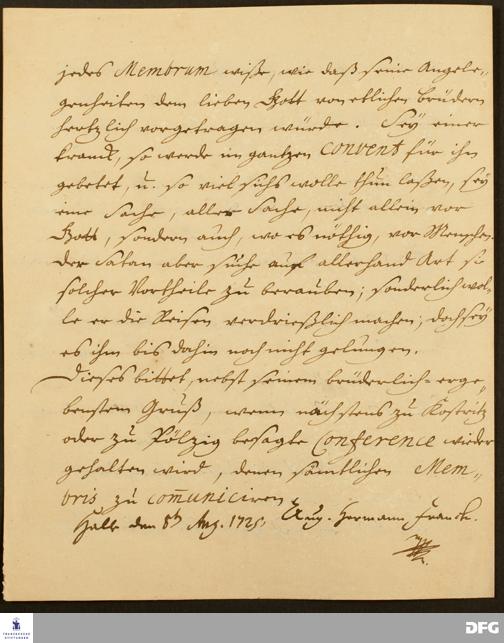 jedes Membrum wiße, wie daß seine Angele-
genheiten dem lieben Gott von etlichen brüdern
hertzlich vorgetragen würde. Sey einer
kranck, so werde im gantzen Convent für ihn
gebetet, u. so viel sichs wolle thun laßen, sey
eine Sache, aller Sache, nicht allein vor
Gott, sondern auch, wo es nöthig, vor Menschen.
Der Satan aber suche auf allerhand Art so
solcher Vortheile zu berauben; sonderlich wol-
le er die Reisen verdrießlich machen; doch sey
es ihm bis dahin noch nicht gelungen.
Dieses bittet, nebst seinem brüderlich-erge-
benstem Gruß, wenn nächstens zu Köstritz
oder zu Pölzig besagte Conference wieder
gehalten wird, denen sämtlichen Mem-
bris zu com̄uniciren
Halle den 8t Aug. 1725. Aug. Hermann Franck.
FRANCKESCHE STIFTUNGEN
DFG